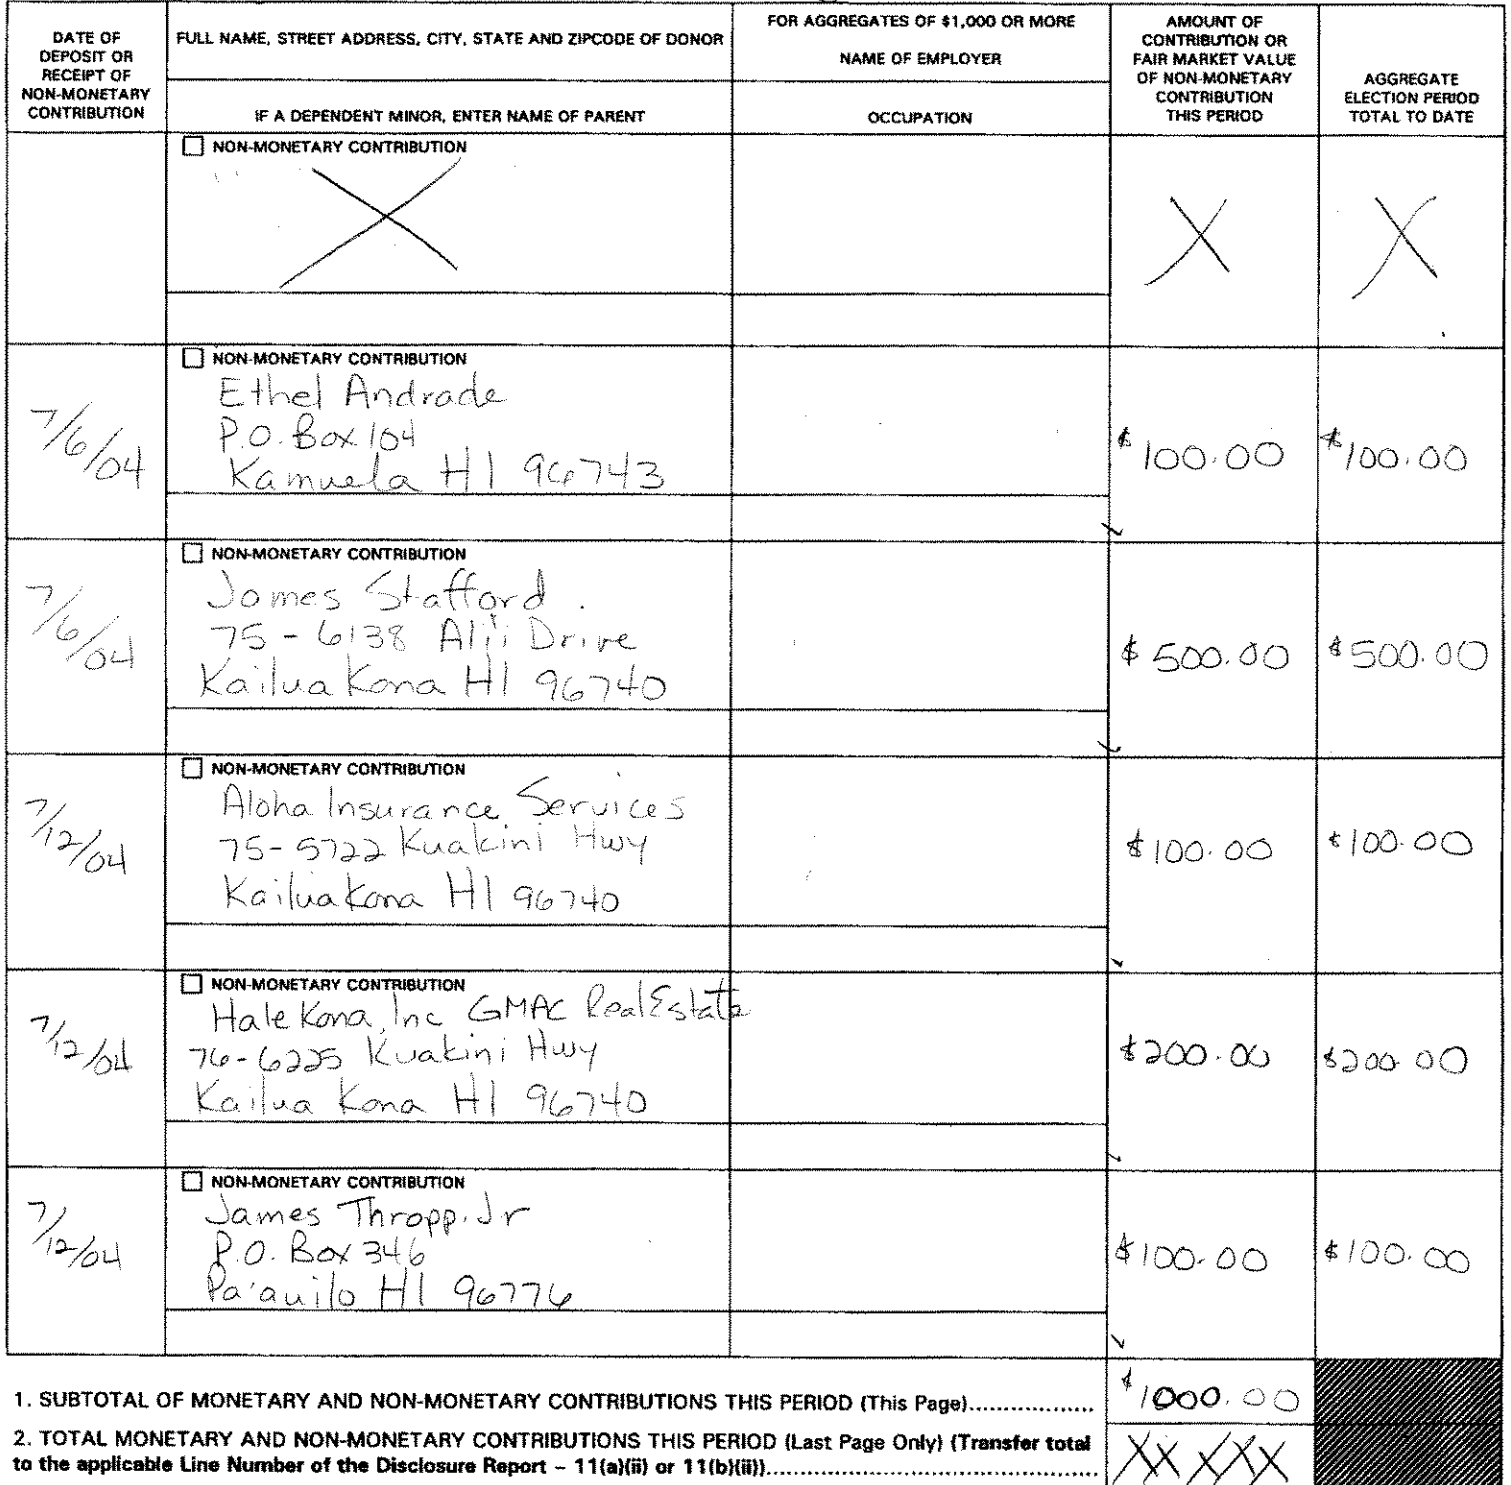 DATE OF
DEPOSIT OR
RECEIPT OF
NON-MONETARY
CONTRIBUTION
FULL NAME, STREET ADDRESS, CITY, STATE AND ZIPCODE OF DONOR
IF A DEPENDENT MINOR, ENTER NAME OF PARENT
FOR AGGREGATES OF $1,000 OR MORE
NAME OF EMPLOYER
OCCUPATION
AMOUNT OF
CONTRIBUTION OR
FAIR MARKET VALUE
OF NON-MONETARY
CONTRIBUTION
THIS PERIOD
AGGREGATE
ELECTION PERIOD
TOTAL TO DATE
NON-MONETARY CONTRIBUTION
X
X
X
7/6/04
NON-MONETARY CONTRIBUTION
Ethel Andrade
P.O. Box 104
Kamuela HI 96743
$100.00
$100.00
7/6/04
NON-MONETARY CONTRIBUTION
James Stafford.
75-6138 Ali'i Drive
Kailua Kona HI 96740
$500.00
$500.00
7/12/04
NON-MONETARY CONTRIBUTION
Aloha Insurance Services
75-5722 Kuakini Hwy
Kailua Kona HI 96740
$100.00
$100.00
7/12/04
NON-MONETARY CONTRIBUTION
Hale Kona, Inc GMAC Real Estate
76-6225 Kuakini Hwy
Kailua Kona HI 96740
$200.00
$200.00
7/12/04
NON-MONETARY CONTRIBUTION
James Thropp. Jr
P.O. Box 346
Pa'auilo HI 96776
$100.00
$100.00
1. SUBTOTAL OF MONETARY AND NON-MONETARY CONTRIBUTIONS THIS PERIOD (This Page)...................
$1000.00
2. TOTAL MONETARY AND NON-MONETARY CONTRIBUTIONS THIS PERIOD (Last Page Only) (Transfer total
to the applicable Line Number of the Disclosure Report – 11(a)(ii) or 11(b)(ii))..................................................
XX XXX